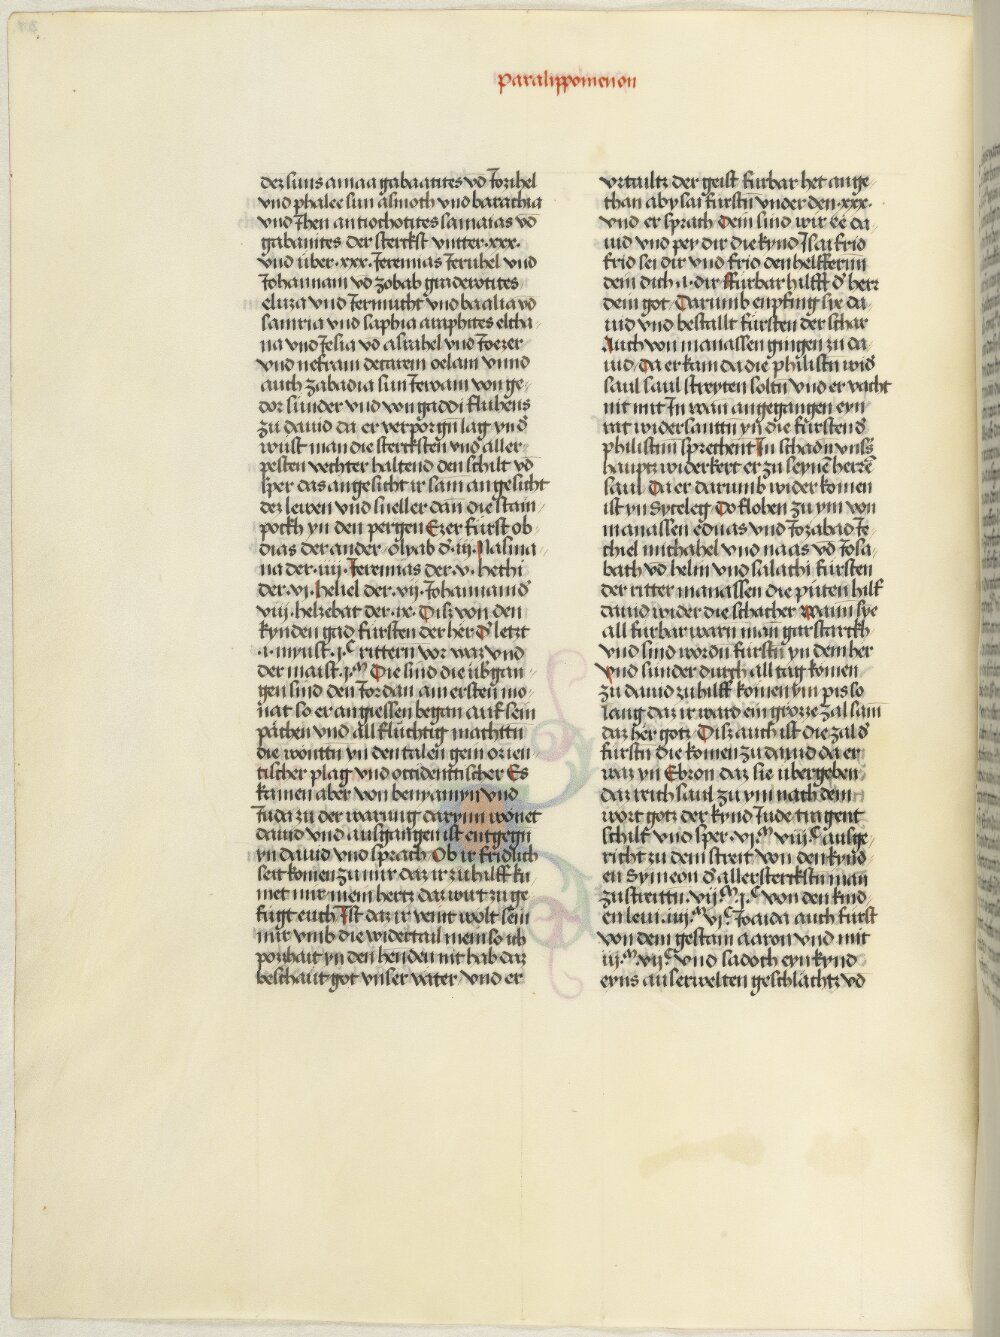 Paralippomenon
dez suns amaa gabaatites vō Jorihel
vnd phalee sun asmoth vnd barathia
vnd Jhen antiochotites samaias vō
gabanites der sterckst vntter ·xxx·
vnd über ·xxx· Jeremias Jeruhel vnd
Johannam vō zobab gaderotites
eluza vnd Jermucht vnd baalia vō
samria vnd saphia araphites eltha-
na vnd Jesia vō asrahel vnd Joezer
vnd nefram decarem oelam vnnd
auch zabadia sun Jewam von ge-
dor sunder vnd von gaddi fluhens
zu dauid da er verporgn lag yn d̕
wüst man die stercksten vnd aller
pesten vechter haltend den schilt vō
sper das angesicht ir sam angesicht
dez lewen vnd sneller dan die stain-
pockh yn den pergen Ezer fürst ob-
dias der ander · olyab d̕ ·iij· Masma-
na der ·iiij· Jeremias der ·v· hethi
der ·vi· heliel der ·vij· Johannam d̕
viij · helzebat der ·ix· Disz von den
kynden gad fürsten der her D̕ letzt
·i· mynst ·j·C rittern vor waz vnd
der maist ·x·M Die sind die übgan-
gen sind den Jordan am ersten mo-
nat so er angiessen began auf sein
pächen vnd all fluchtig machttn
die wonttn yn den talen gem orien-
tischer plag vnd occidentischer Es
kamen aber von benyamyn vnd
Juda zu der warung darynn wonet
dauid vnd ausgangen ist entgegn
yn dauid vnd sprach Ob ir fridlich
seit komen zu mir daz ir zu hilff ku-
met mir mein hertz daz wirt zuge-
fugt euch Ist daz ir veint wolt sein
mir vmb die widertail mein so ich
poszhait yn den henden nit hab daz
beschaut got vnser vater · vnd er
vrtailtz der geist fürbar het ange-
than abysai fürstn vnder den ·xxx·
vnd er sprach Dein sind wir ee da-
uid vnd pey dir die kynd Isai frid
frid sei dir vnd frid den helffernn
dein dich ·i· dir Fürbar hilfft d̕ herr
dein got · Darumb enpfing sye da-
uid vnd bestallt fürsten der schar
Auch von manassen gingen zu da-
uid · Da er kam da die philistn wid̕
saul saul streyten soltn vnd er vacht
nit mit In wan angegangen eyn
rat widersantn yn die fürsten d̕
philistim sprechent In schadn vnss̕
hauptz widerkert er zu seynē herrē
saul Da er darumb wider komen
ist yn Syceleg · Do flohen zu ym von
manassen ednas vnd Jozabad Je-
thiel michahel vnd naas vō Josa-
bath vō helm vnd salachi fürsten
der ritter manassen die puten hilf
dauid wider die schacher Wann sye
all fürbar warn man gar starckh
vnd sind wordn fürstn yn dem her
Vnd sunder durch all tag komen
zu dauid zu hilff komen ym pis so
lang daz ir ward ein grozze zal sam
daz her gotz · Disz auch ist die zal d̕
fürstn die komen zu dauid da er
waz yn Ebron daz sie übergeben
daz reich saul zu ym nach dem
wort gotz der kynd Jude tragent
schilt vnd sper ·vi·M viij·C ausge-
richt zu dem streit von den kynd-
en Symeon d̕ allersterckstn man
zu streittn ·vij·M ·j·C von den kind-
en leui ·iiij·M vi·C Joaida auch fürst
von dem gestam aaron vnd mit
iij·M vij·C vnd sadoch eyn kynd
eyns auserwelten geschlächtz vō